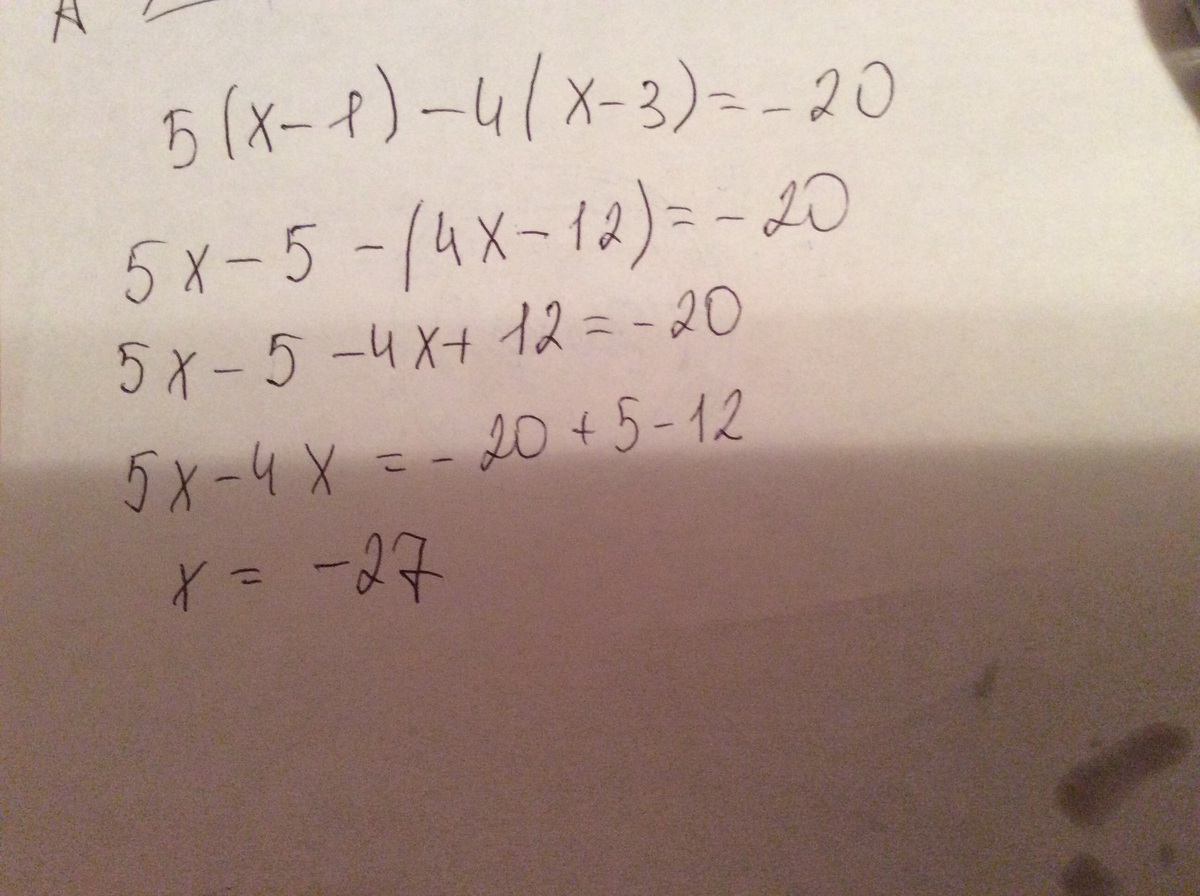 A
5(x-1)-4(x-3)=-20
5x-5-(4x-12)=-20
5x-5-4x+12=-20
5x-4x=-20+5-12
x=-27